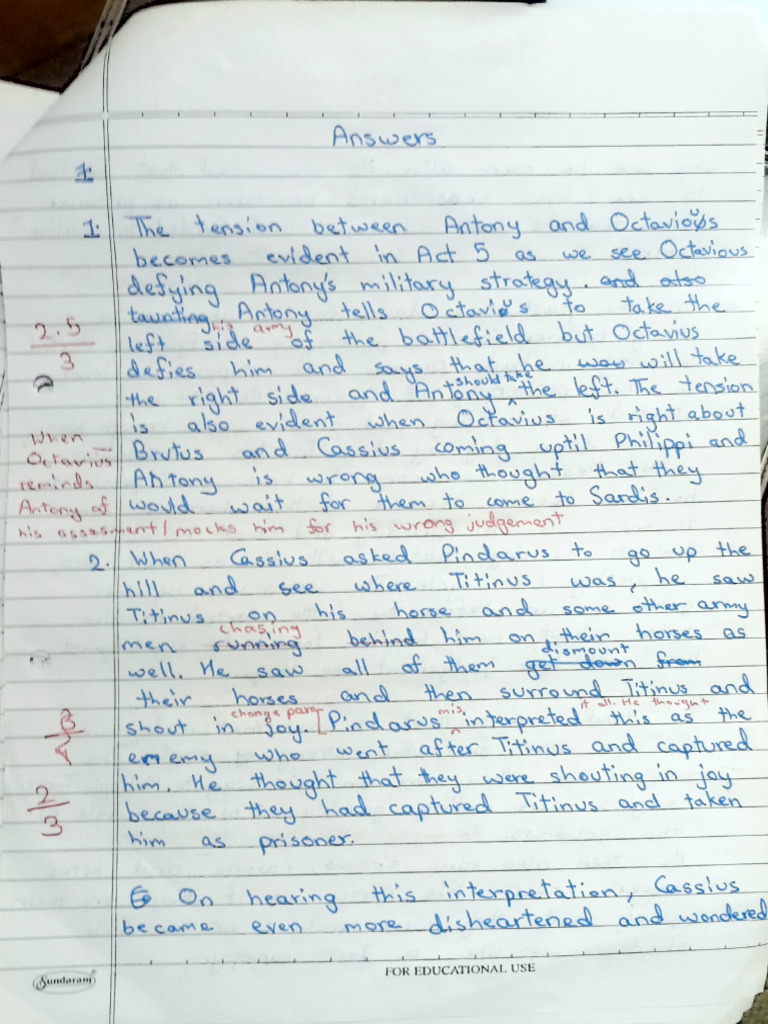 Answers
1:
1: The tension between Antony and Octavious
becomes evident in Act 5 as we see Octavious
defying Antony's military strategy. and also
taunting Antony tells Octavius to take the
his army
left side of the battlefield but Octavius
2.5
3
defies him and says that he was will take
should take
the right side and Antony ^ the left. The tension
is also evident when Octavius is right about
Brutus and Cassius coming uptil Philippi and
Antony is wrong who thought that they
would wait for them to come to Sardis.
When
Octavius
reminds
Antony of
his assesment / mocks him for his wrong judgement
2. When Cassius asked Pindarus to go up the
hill and see where Titinus was, he saw
Titinus on his horse and some other army
chasing
men running behind him on their horses as
dismount
well. He saw all of them get down from
their horses and then surround Titinus and
change para mis it all. He thought
shout in joy. [Pindarus ^ interpreted this as the
enemy who went after Titinus and captured
him. He thought that they were shouting in joy
because they had captured Titinus and taken
him as prisoner.
3
4
2
3
On hearing this interpretation, Cassius
became even more disheartened and wondered
Sundaram
FOR EDUCATIONAL USE